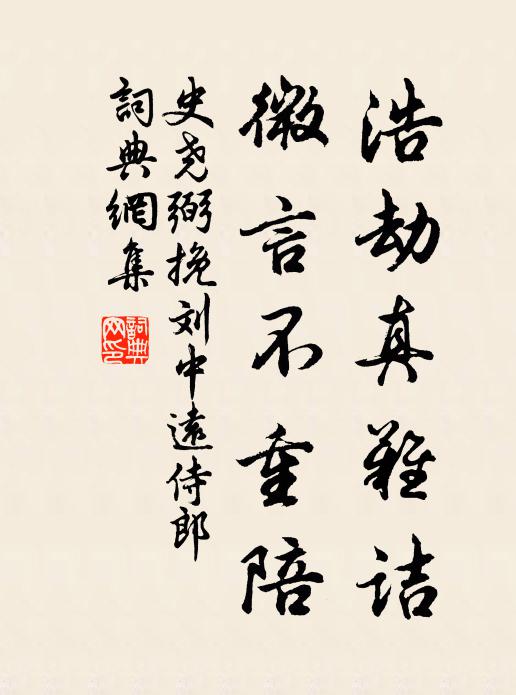 浩劫真難诘
微言不重陪
史尧弼挽刘中遠侍郎
詞典網集
詞典网印